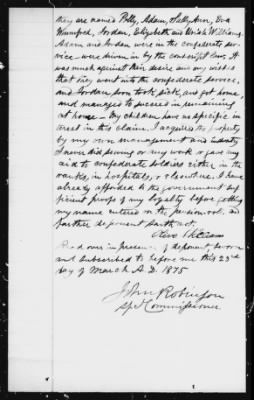 they are named Polly, Adam, Sally Ann, Eva
Winnifred, Jordan, Elizabeth and Williams.
Adam and Jordan were in the confederate ser-
vice - were driven in by the conscript law. It
was much against their desire and my wish
that they went into the confederate service,
and Jordan, soon took sick, and got home,
and managed to succeed in remaining
at home - My children have no specific in-
terest in this claim. I acquired the property
by my own management and industry
I never did picket or any work or gave any
aid to confederate soldiers either in the
ranks, in hospitals, or elsewhere. I have
already afforded to the government suf
ficient proofs of my loyalty before getting
my name entered on the pension roll, and
further deponent saith not.
Williams
Read over in presence of deponent sworn
and subscribed to before me this 23d
day of March A.D. 1875
John Robinson
Spl Commissioner